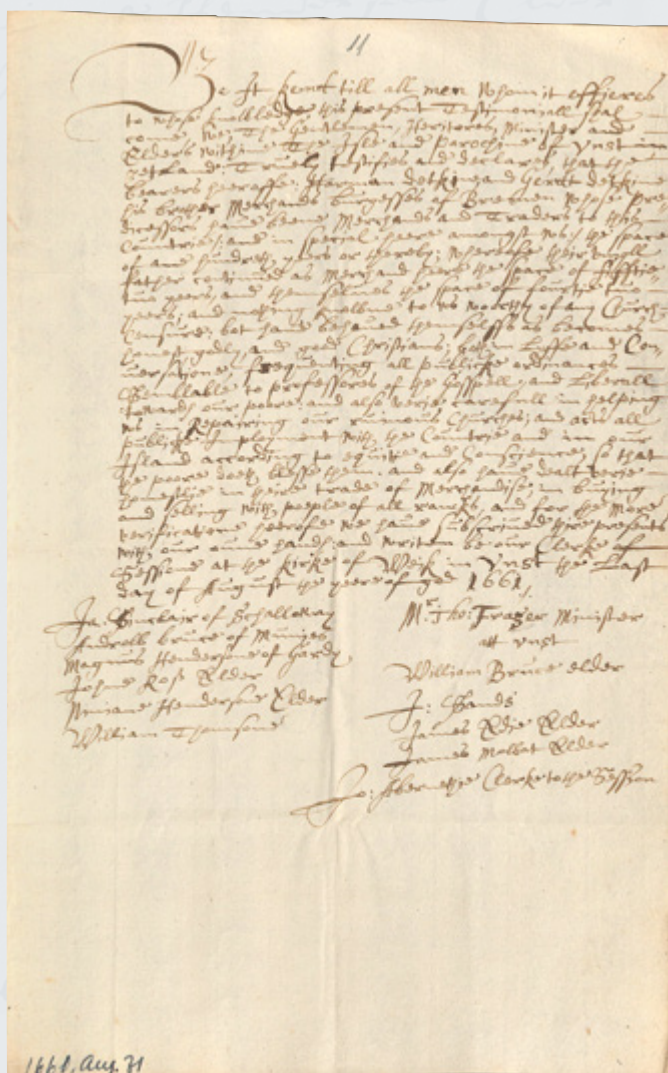 11
Be It kend till all men whom it effjeres
to whose knowledge this present Testimoniall shal
come We; The Gentlemen, Heritores, Minister and
Elders within The Isle and Parochine of Ynst in
yetland: Truely testifies and declares that the
bearers heeroffe; Harman detkine and Gerdt detkine
his brother Merchands burgesses of Bremen whose pre
dicessors have beene Merchands and Traders to this
Countrie; and in speciall heere amongst us; the space
of ane hundreth yeers or therby; wherofe their
father continued as Merchand heere the space of fifftie
two yeers, and themselves the space of fourtie two
yeers; and nothing knowne to us worthy of any Church
Censure; bot have behaved themselfs as becomes
honest godly, and good Christians; both in Lyffe and Con
versatione, frequenting all publicke ordinances
to professores of the Gosspell; and Liberall
towards our poore; and also verie carefull in helping
us in Repairing our ruinous Churches; and acts all
publicke Imployment with the Countrie and in our
Island according to equitie and Conscience; so that
the poore doeth blesse them. and also have dealt verie
honestlie in their trade of Merchandise, in buying
and selling with people of all ranks, and for the More
verificatione heerofe we have subscriued thire presents
with our owne hands; and writen be our Clerke of
Sessione at the kirke of Weik in Ynst the Last
day of August the yeere of god 1661,
Ja: Sinclair of Schalloway
Androw bruce of Munjes
Magnus Hendersone of Gardy
Johne Ross Elder
Niniane Hendersone Elder
William Thomsone
Mr Tho: Frazer Minister
att ynst
William Bruce elder
J: Bands
James Edie Elder
James Mowat Elder
Jo: Abernethie Clerke to the Session
1661, Aug. 31